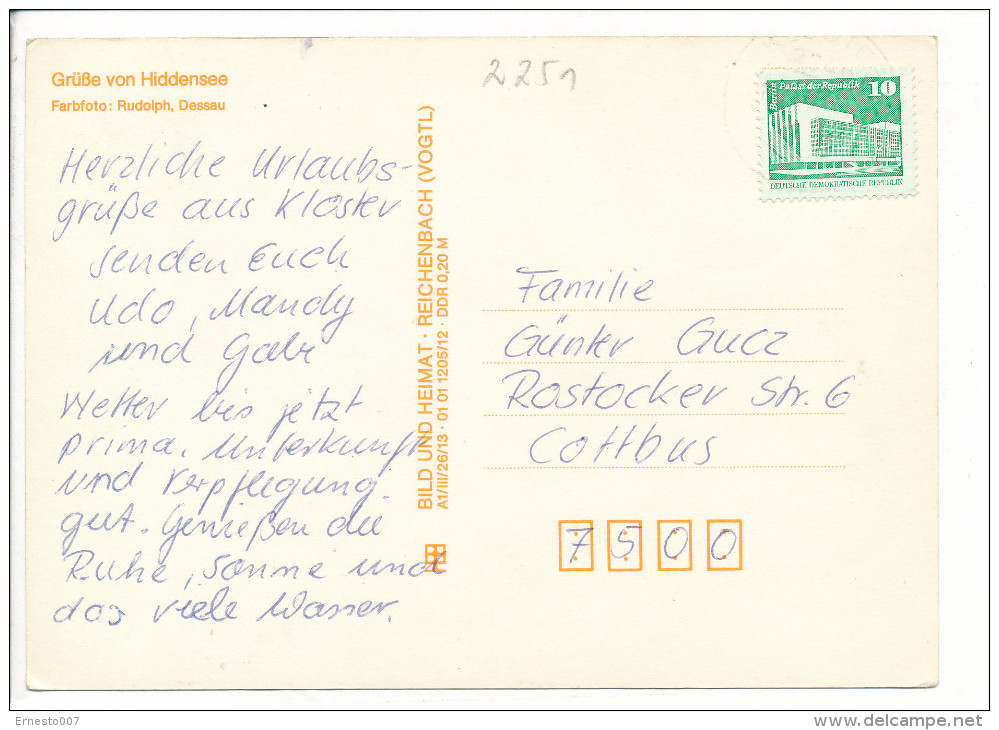 Grüße von Hiddensee
Farbfoto: Rudolph, Dessau
2251
Herzliche Urlaubs-
grüße aus Kloster
senden Euch
Udo, Mandy
und Gabi
Wetter bis jetzt
prima. Unterkunft
und Verpflegung
gut. Genießen die
Ruhe, Sonne und
das viele Wasser.
BILD UND HEIMAT · REICHENBACH (VOGTL)
A1/III/26/13 · 01 01 1205/12 · DDR 0,20 M
Berlin Palast der Republik 10
DEUTSCHE DEMOKRATISCHE REPUBLIK
Familie
Günter Gucz
Rostocker Str. 6
Cottbus
7500
Ernesto007
delcampe.net